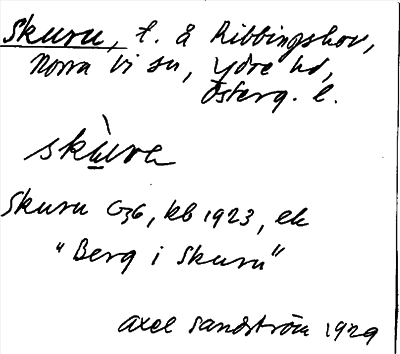 Skuru, t. å Ribbingshov,
Norra Vi sn, Ydre hd,
Österg. l.
skùra
Skuru G36, kb 1923, ek
"Berg i Skuru"
Axel Sandström 1929